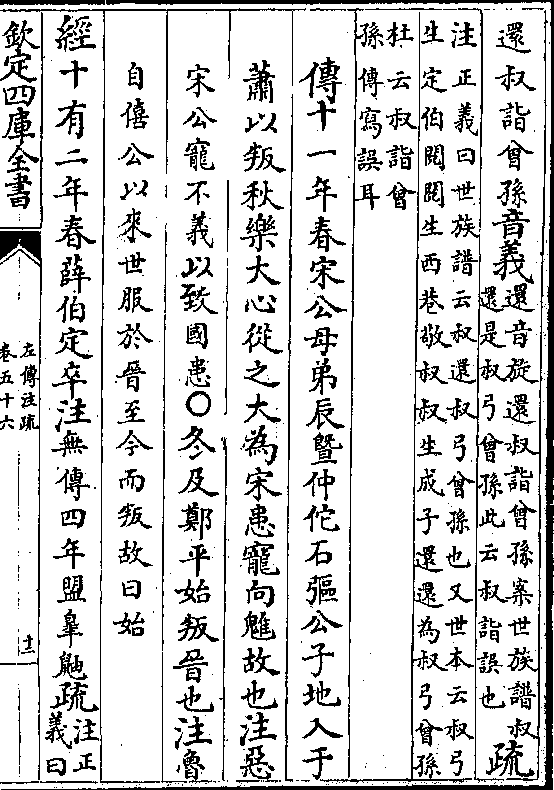 還叔詣曾孫音義還音旋還叔詣曾孫案世族譜叔
還是叔弓曾孫此云叔詣誤也疏
注正義曰世族譜云叔還叔弓曾孫也又世本云叔弓
生定伯閱閱生西巷敬叔叔生成子還還為叔弓曾孫
杜云叔詣曾
孫傳寫誤耳
傳十一年春宋公母弟辰暨仲佗石彄公子地入于
蕭以叛秋樂大心從之大為宋患寵向魋故也注惡
宋公寵不義以致國患〇冬及鄭平始叛晉也注魯
自僖公以來世服於晉至今而叛故曰始
經十有二年春薛伯定卒注無傳四年盟臯鼬疏注正
義曰
欽定四庫全書
左傳注疏
卷五十六
十三